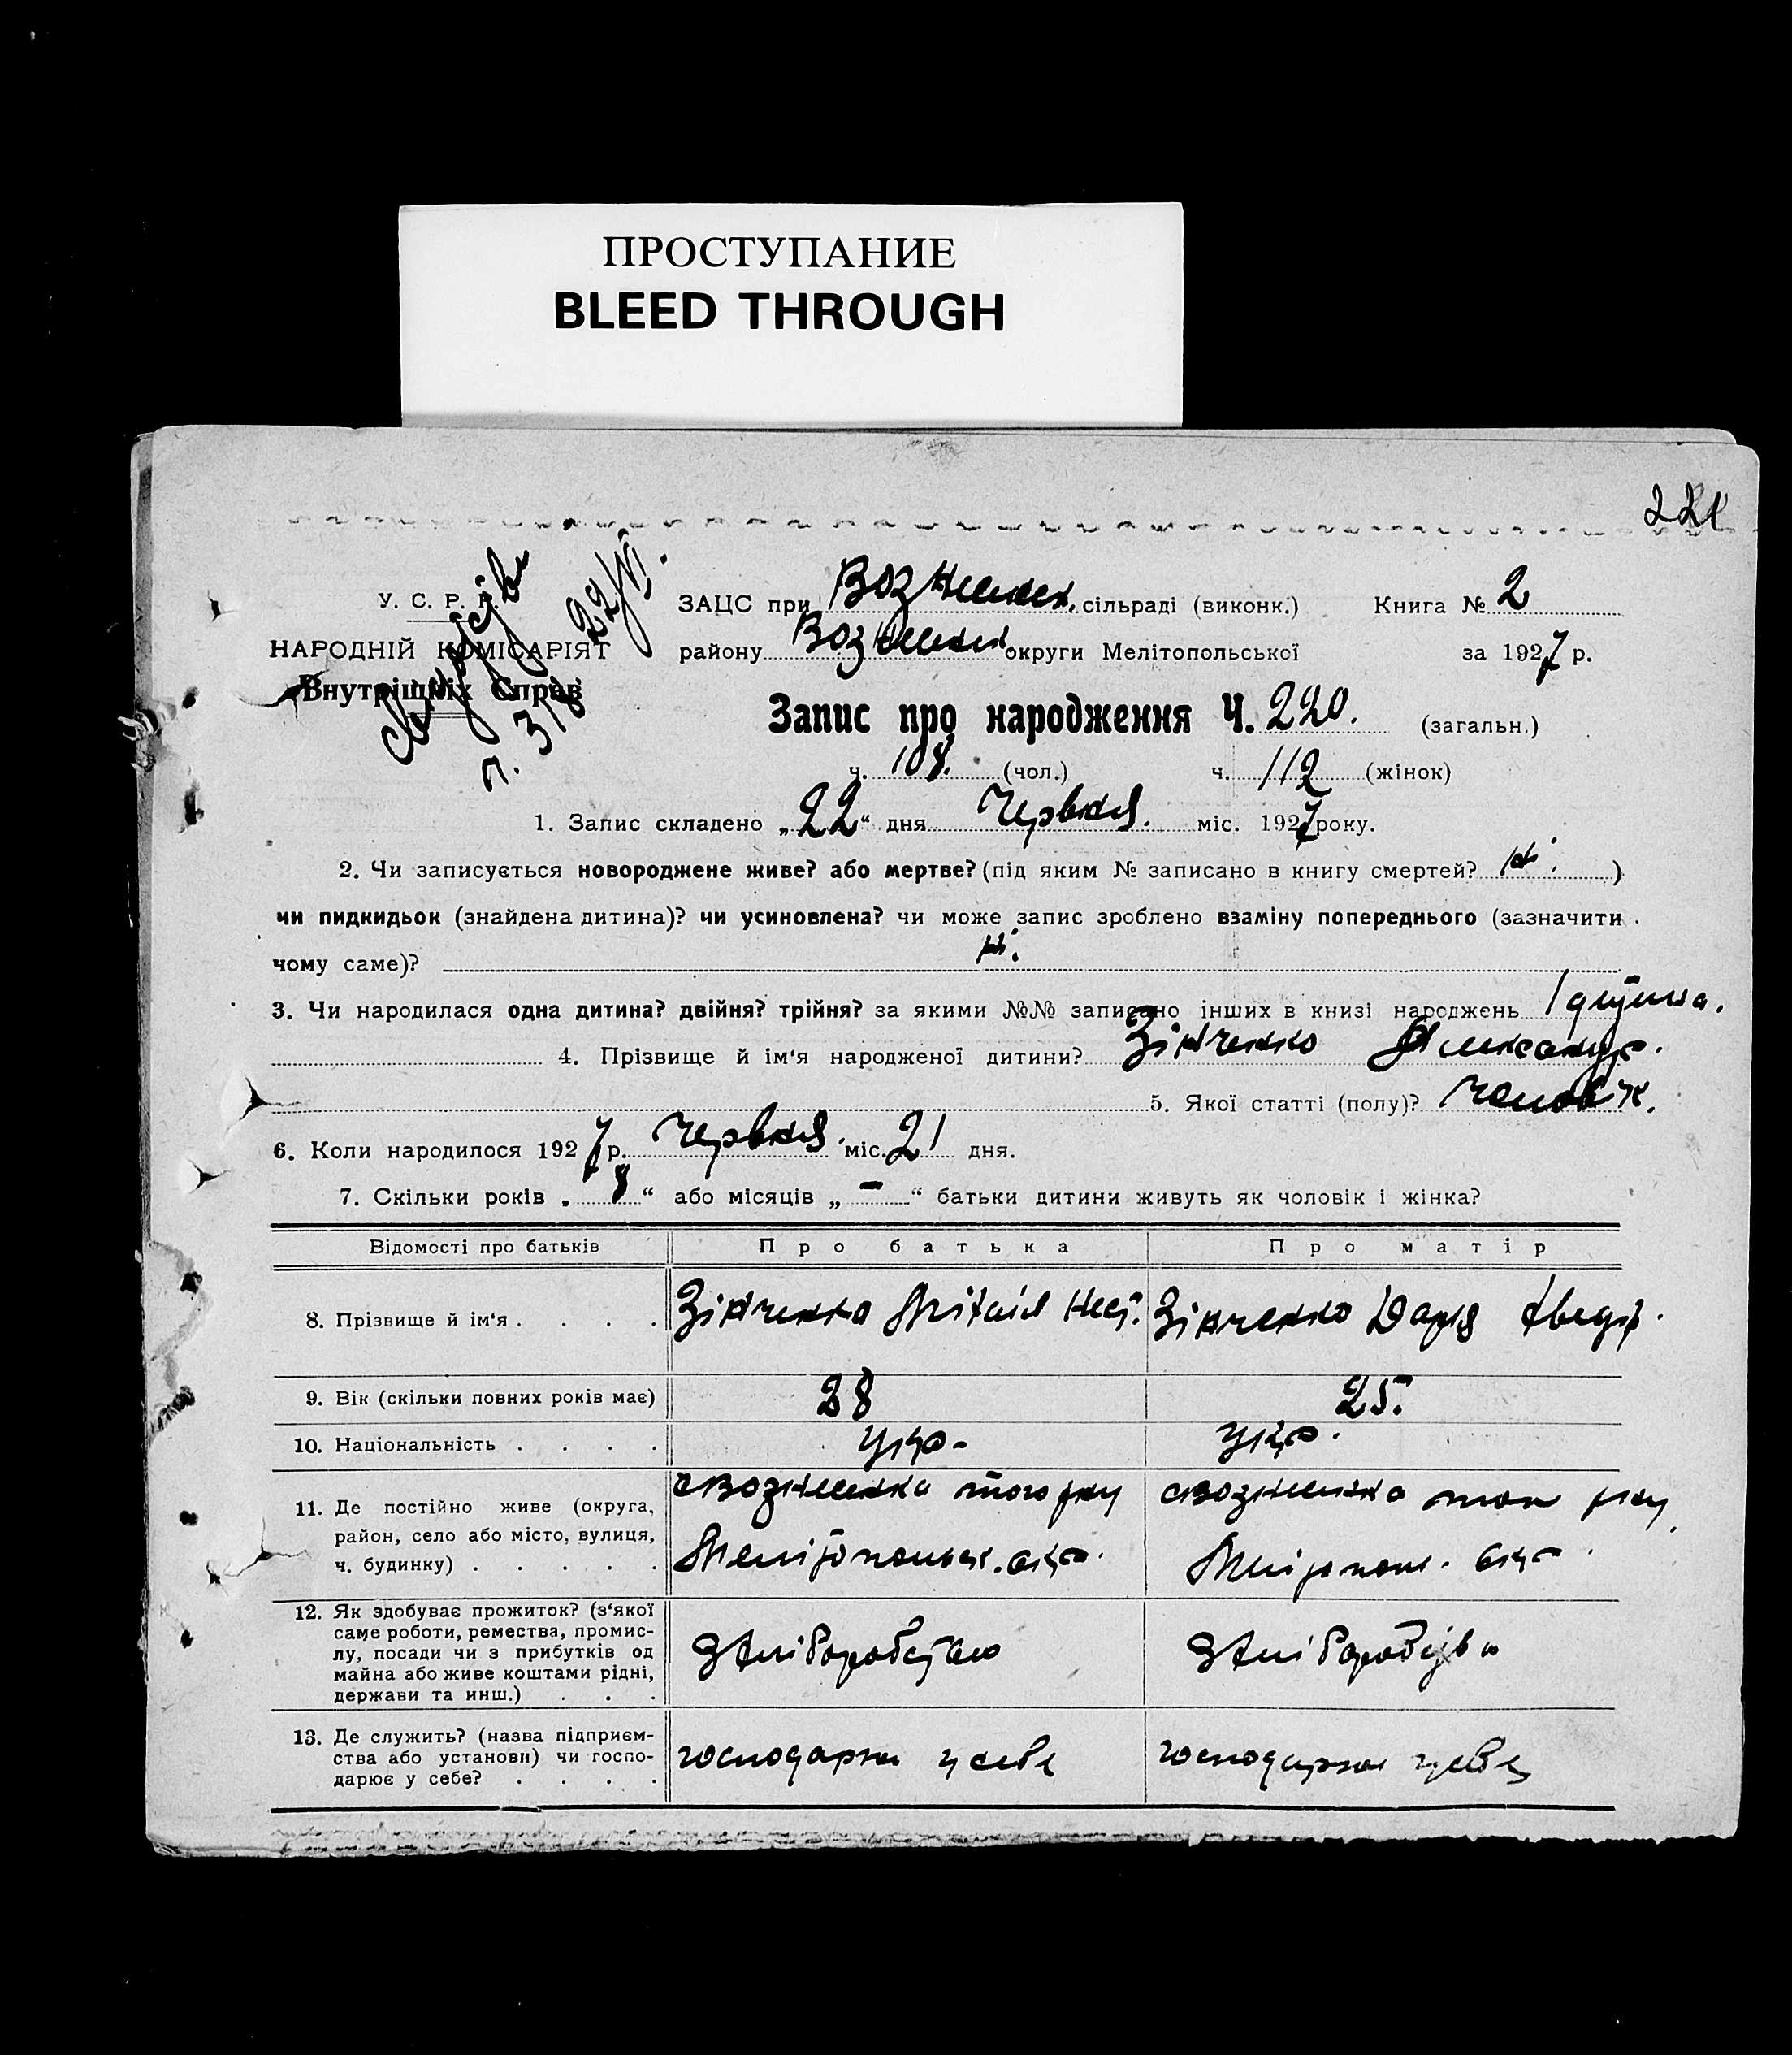 ПРОСТУПАНИЕ
BLEED THROUGH
221
У. С. Р. Р.
НАРОДНІЙ КОМІСАРІЯТ
Внутрішніх Справ
22/VI.
ЗАЦС при Вознесенск. сільраді (виконк.) Книга № 2
району Вознесенск округи Мелітопольської за 1927 р.
Запис про народження Ч. 220. (загальн.)
ч. 108. (чол.) ч. 112 (жінок)
1. Запис складено „22“ дня Червня. міс. 1927 року.
2. Чи записується новороджене живе? або мертве? (під яким № записано в книгу смертей? ні. )
чи пидкидьок (знайдена дитина)? чи усиновлена? чи може запис зроблено взаміну попереднього (зазначити
чому саме)? ні.
3. Чи народилася одна дитина? двійня? трійня? за якими №№ записано інших в книзі народжень 1 дитина.
4. Прізвище й ім‘я народженої дитини? Зінченко Александр.
5. Якої статті (полу)? чоловік.
6. Коли народилося 1927 р. Червня. міс. 21 дня.
7. Скільки років „ 8 “ або місяців „ — “ батьки дитини живуть як чоловік і жінка?
Відомості про батьків Про батька Про матір
8. Прізвище й ім‘я . . . . Зінченко Нест. Зінченко Дарія Фведір.
9. Вік (скільки повних років має) 28 25.
10. Національність . . . . укр. укр.
11. Де постійно живе (округа, район, село або місто, вулиця, ч. будинку) . . . . . с Вознесенка того рну Мелітопольск. окр. с Вознесенка того рну Мелітопол. окр.
12. Як здобуває прожиток? (з‘якої саме роботи, ремества, промислу, посади чи з прибутків од майна або живе коштами рідні, держави та инш.) . . . Хліборобство Хліборобство
13. Де служить? (назва підприємства або установи) чи господарює у себе? . . . . господарює у себе господарює у себе